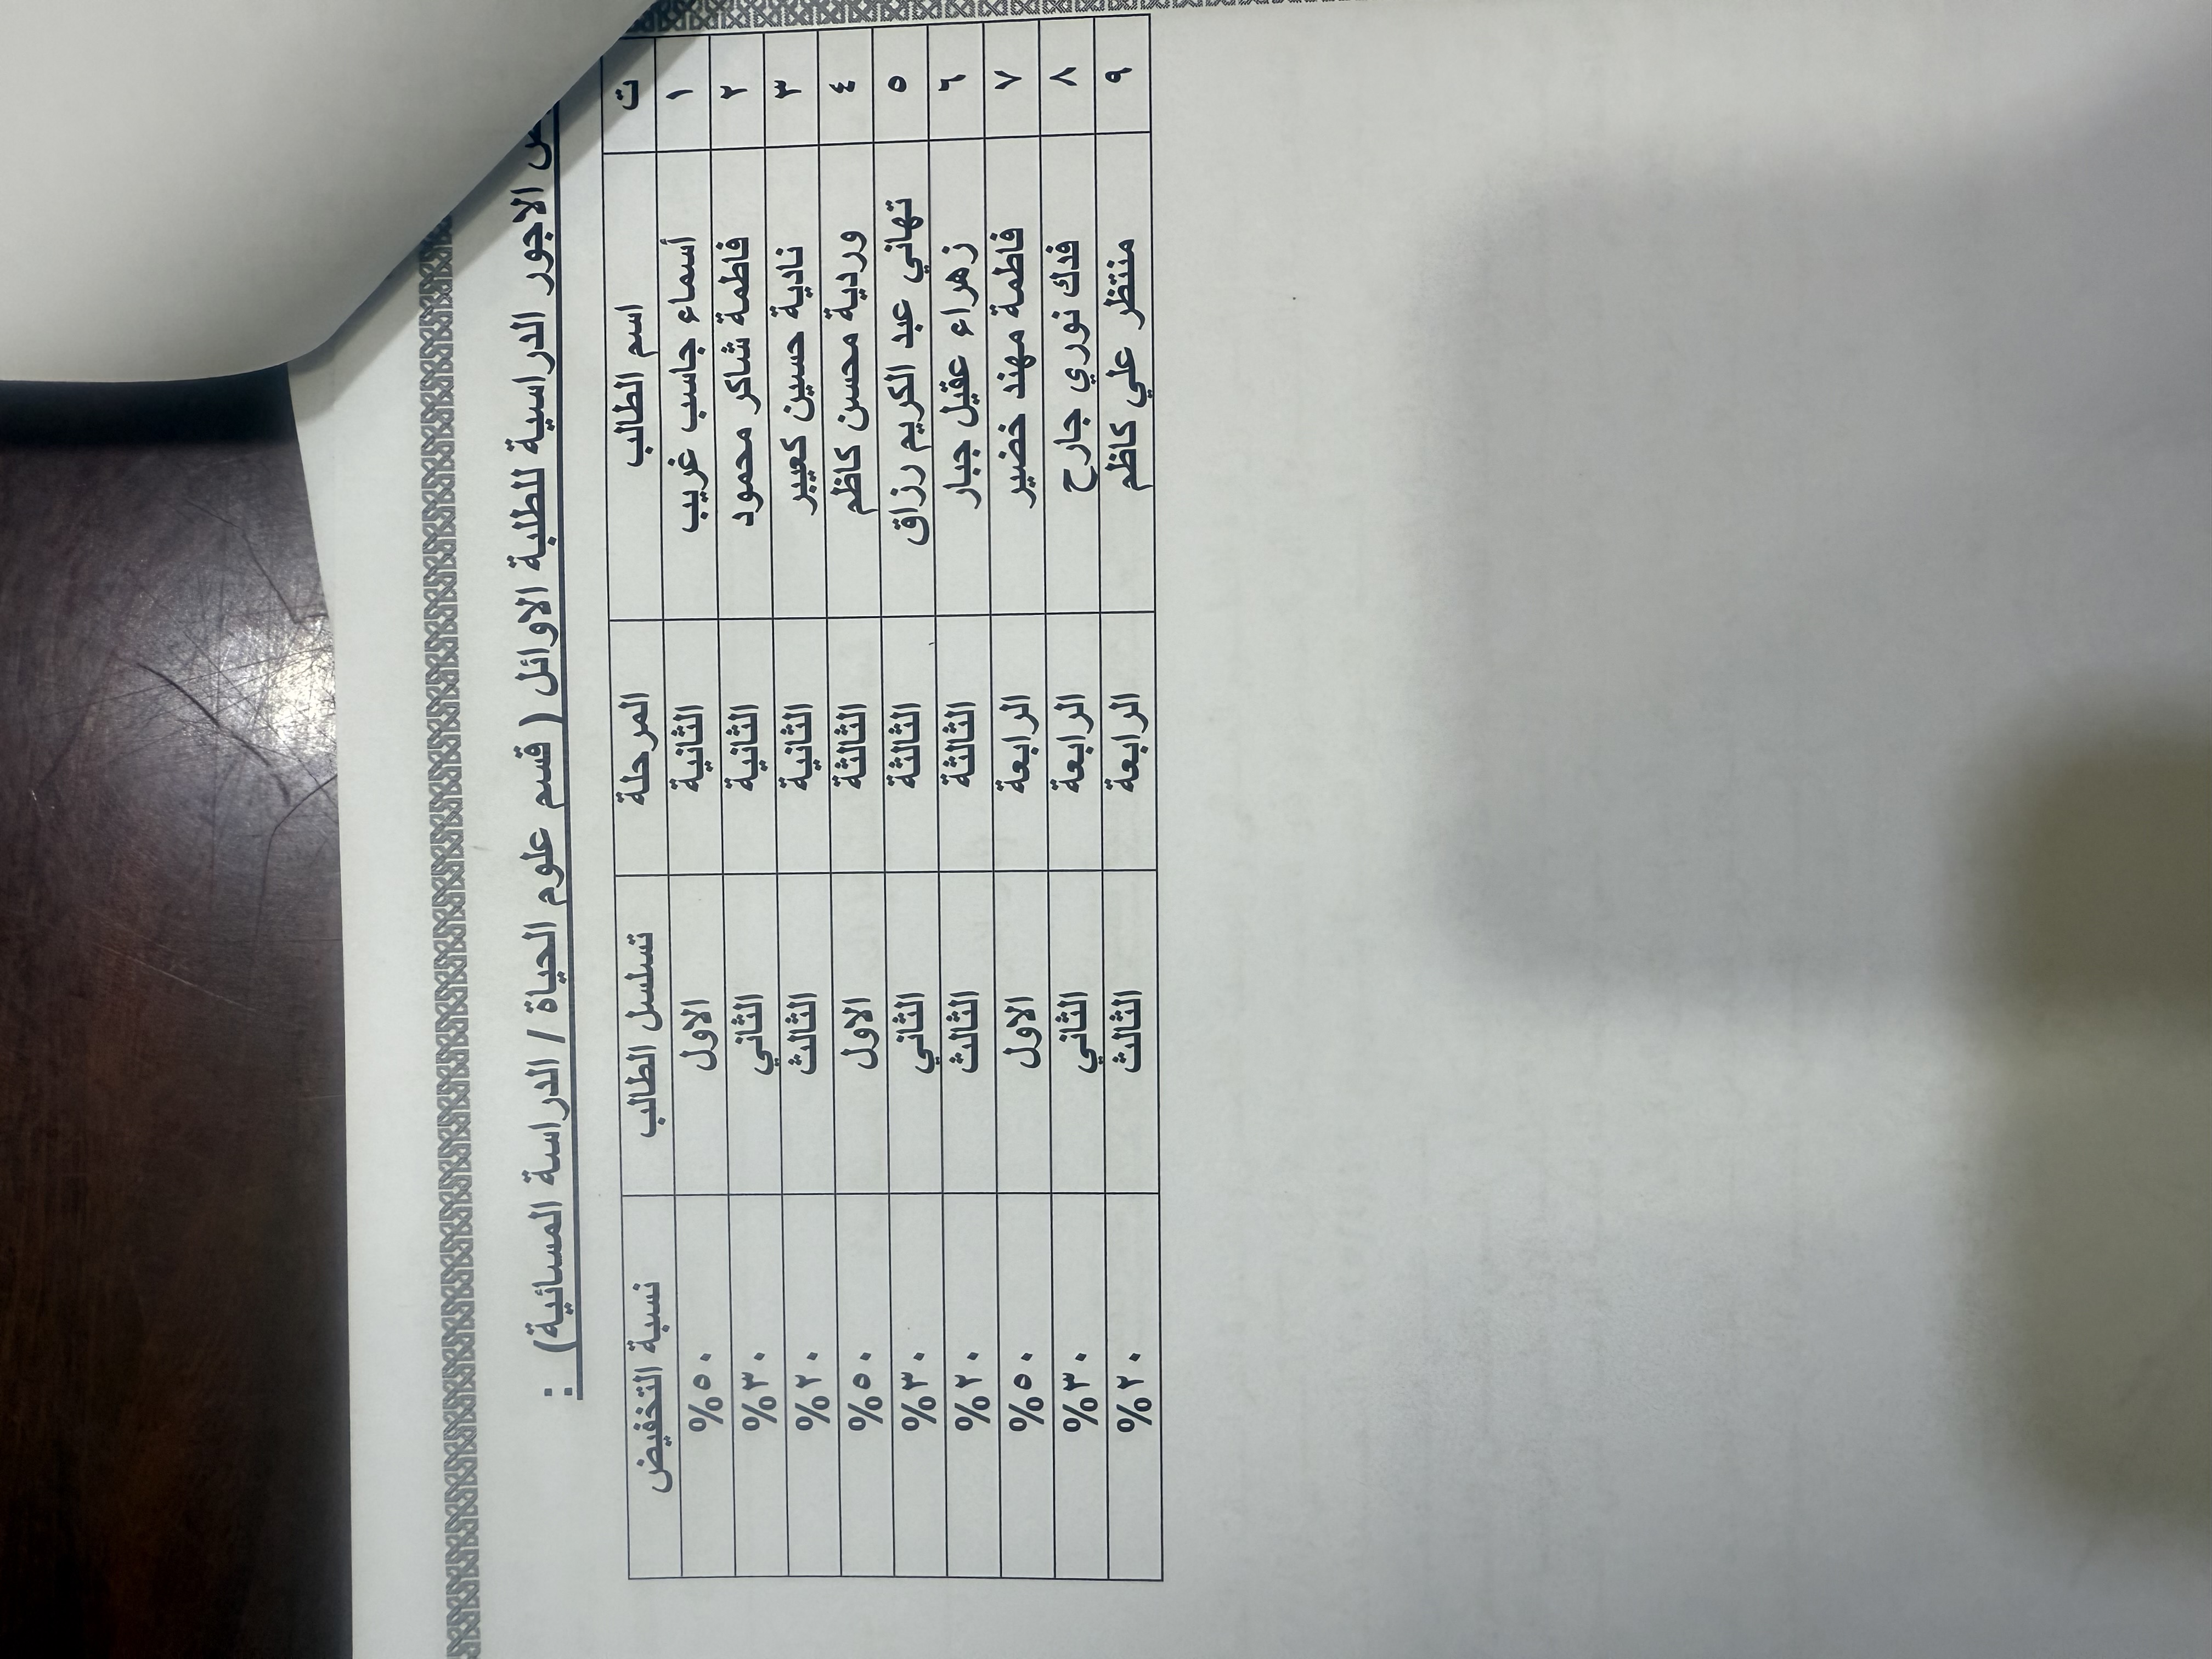 الاجور الدراسية للطلبة الاوائل ( قسم علوم الحياة / الدراسة المسائية) :
ت اسم الطالب المرحلة تسلسل الطالب نسبة التخفيض
١ أسماء جاسب غريب الثانية الاول ٥٠%
٢ فاطمة شاكر محمود الثانية الثاني ٣٠%
٣ نادية حسين كعيبر الثانية الثالث ٢٠%
٤ وردية محسن كاظم الثالثة الاول ٥٠%
٥ تهاني عبد الكريم رزاق الثالثة الثاني ٣٠%
٦ زهراء عقيل جبار الثالثة الثالث ٢٠%
٧ فاطمة مهند خضير الرابعة الاول ٥٠%
٨ فدك نوري جارح الرابعة الثاني ٣٠%
٩ منتظر علي كاظم الرابعة الثالث ٢٠%